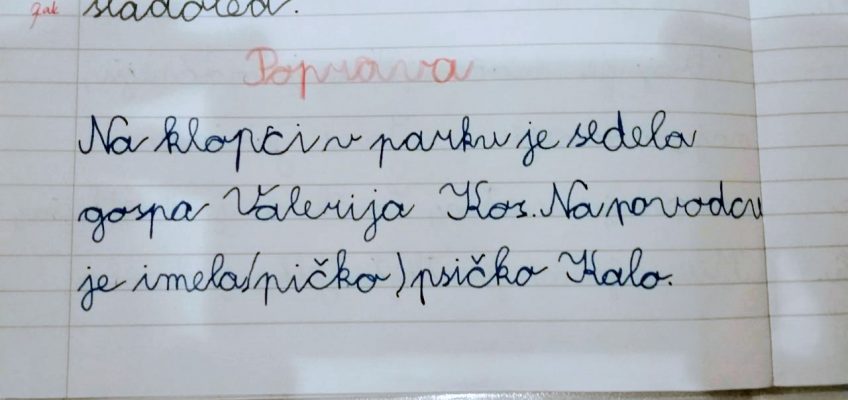 žak sladoled.
Poprava
Na klopci v parku je sedela
gospa Valerija Kos. Na povodcu
je imela (pičko) psičko Kalo.